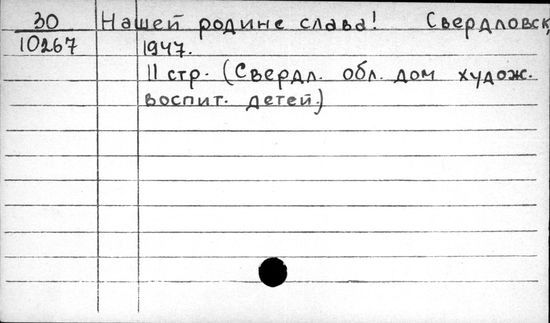 30 Нашей родине слава! Свердловск,
10267 1947.
11 стр. (Свердл. обл. дом худож.
воспит. детей.)